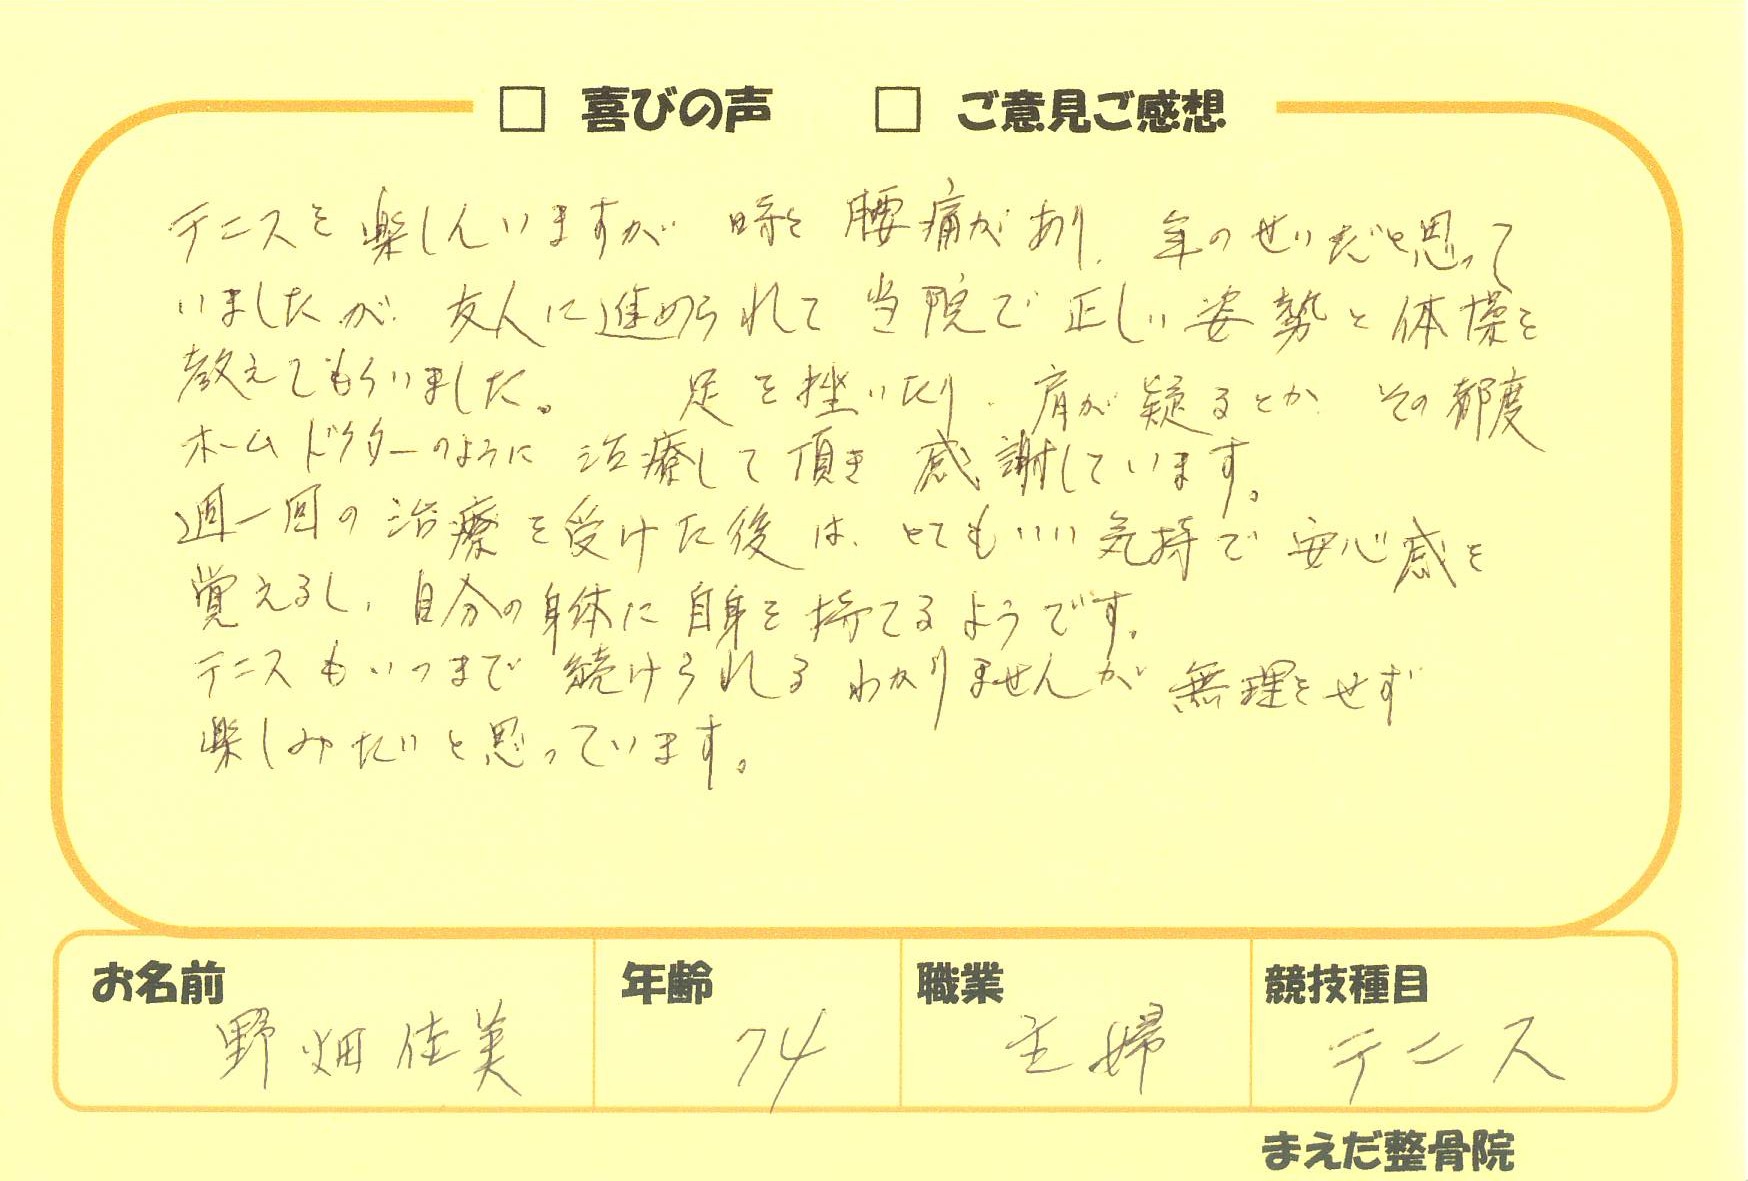 □ 喜びの声　□ ご意見ご感想
テニスを楽しんいますが 時々 腰痛があり、年のせいだと思って
いましたが、友人に進められて 当院で 正しい 姿勢と体操を
教えてもらいました。　足を挫いたり、肩が疑るとか、その都度
ホームドクターのように 治療して頂き 感謝しています。
週一回の治療を受けた後は、とてもいい気持で 安心感を
覚えるし、自分の身体に自身を持てるようです。
テニスもいつまで 続けられる わかりませんが 無理をせず
楽しみたいと思っています。
お名前　年齢　職業　競技種目
野畑佳美　74　主婦　テニス
まえだ整骨院